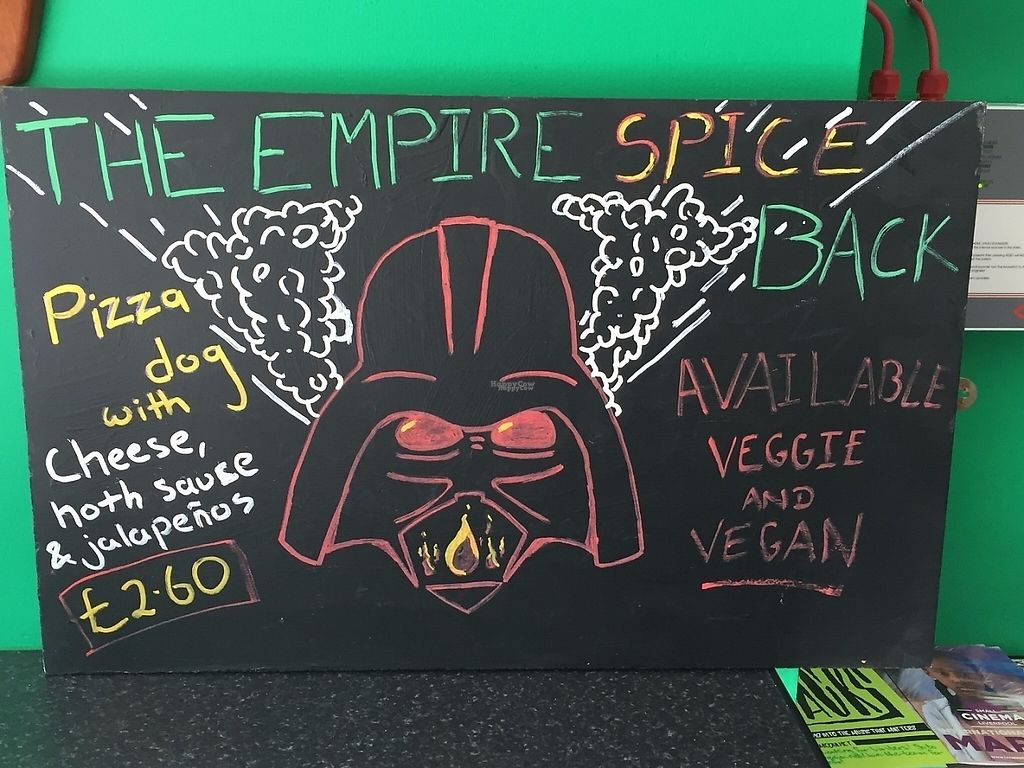 THE EMPIRE SPICE
BACK
Pizza
dog
with
Cheese,
hoth sause
& jalapeños
£2.60
AVAILABLE
VEGGIE
AND
VEGAN
HappyCow
HappyCow
SMALL
CINEMA
LIVERPOOL